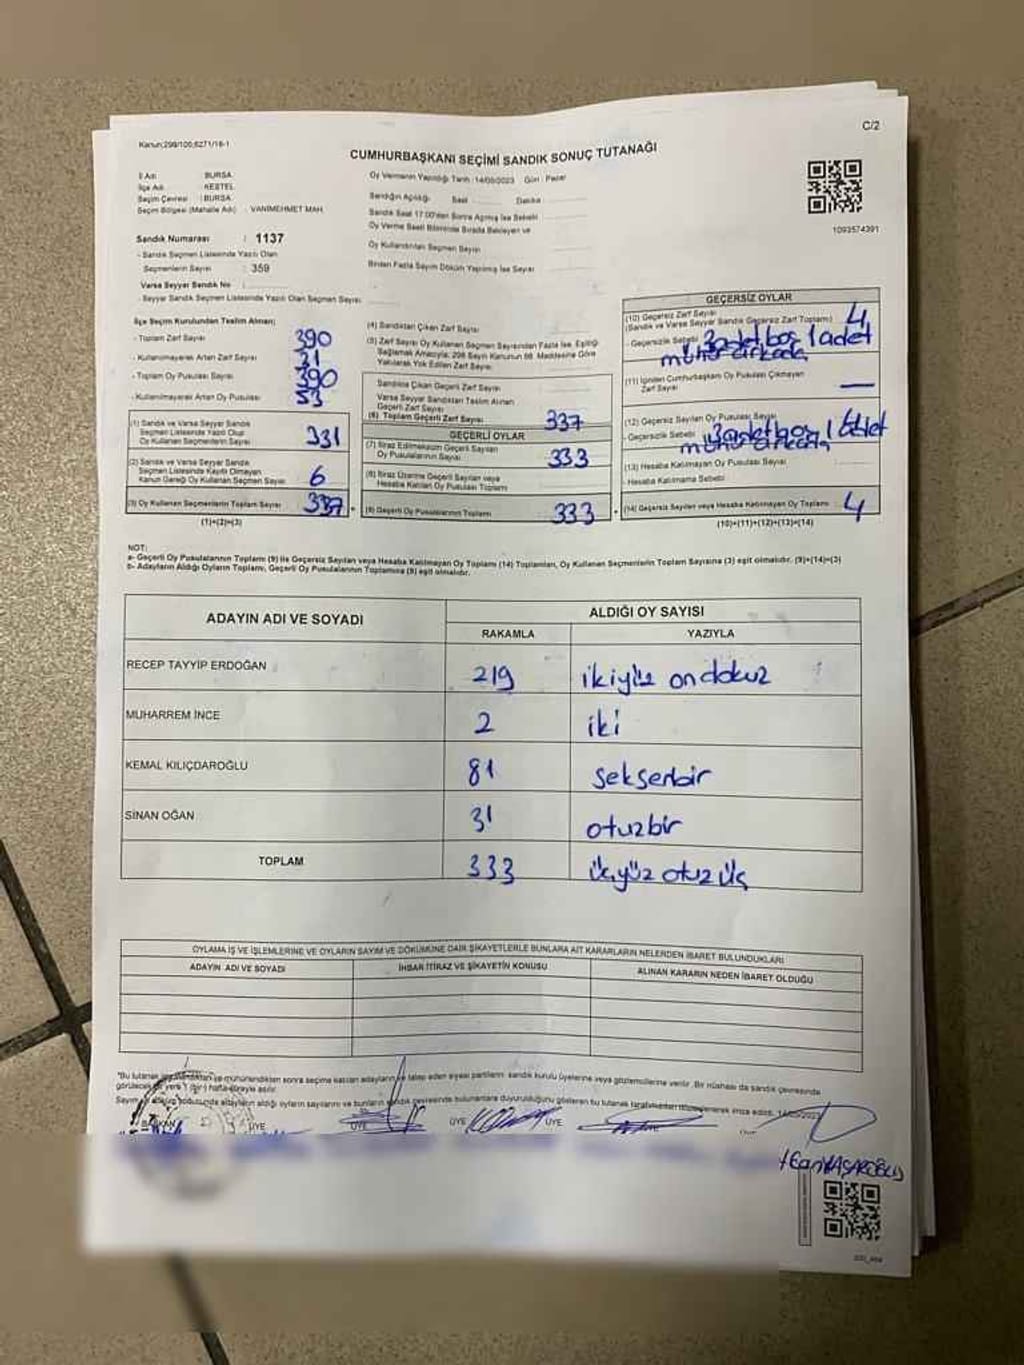 Kanun;298/100;6271/16-1
C/2
CUMHURBAŞKANI SEÇİMİ SANDIK SONUÇ TUTANAĞI
İl Adı BURSA
İlçe Adı KESTEL
Seçim Çevresi : BURSA
Seçim Bölgesi (Mahalle Adı) : VANİMEHMET MAH.
Sandık Numarası : 1137
- Sandık Seçmen Listesinde Yazılı Olan
Seçmenlerin Sayısı : 359
Varsa Seyyar Sandık No :
- Seyyar Sandık Seçmen Listesinde Yazılı Olan Seçmen Sayısı
Oy Vermenin Yapıldığı Tarih : 14/05/2023 Gün : Pazar
Sandığın Açıldığı Saat Dakika
Sandık Saat 17.00'den Sonra Açılmış İse Sebebi
Oy Verme Saati Bitiminde Sırada Bekleyen ve
Oy Kullandırılan Seçmen Sayısı
Birden Fazla Sayım Döküm Yapılmış İse Sayısı
1093574391
İlçe Seçim Kurulundan Teslim Alınan;
- Toplam Zarf Sayısı 390
- Kullanılmayarak Artan Zarf Sayısı 21
- Toplam Oy Pusulası Sayısı 390
- Kullanılmayarak Artan Oy Pusulası 53
(1) Sandık ve Varsa Seyyar Sandık
Seçmen Listesinde Yazılı Olup
Oy Kullanan Seçmenlerin Sayısı 331
(2) Sandık ve Varsa Seyyar Sandık
Seçmen Listesinde Kayıtlı Olmayan
Kanun Gereği Oy Kullanan Seçmen Sayısı 6
(3) Oy Kullanan Seçmenlerin Toplam Sayısı 337
(1)+(2)=(3)
(4) Sandıktan Çıkan Zarf Sayısı
(5) Zarf Sayısı Oy Kullanan Seçmen Sayısından Fazla İse, Eşitliği
Sağlamak Amacıyla; 298 Sayılı Kanunun 98. Maddesine Göre
Yakılarak Yok Edilen Zarf Sayısı
Sandıkta Çıkan Geçerli Zarf Sayısı
Varsa Seyyar Sandıktan Teslim Alınan
Geçerli Zarf Sayısı
(6) Toplam Geçerli Zarf Sayısı 337
GEÇERLİ OYLAR
(7) İtiraz Edilmeksizin Geçerli Sayılan
Oy Pusulalarının Toplamı 333
(8) İtiraz Üzerine Geçerli Sayılan veya
Hesaba Katılan Oy Pusulası Toplamı
(9) Geçerli Oy Pusulalarının Toplamı 333
GEÇERSİZ OYLAR
(10) Geçersiz Zarf Sayısı
(Sandık ve Varsa Seyyar Sandık Geçersiz Zarf Toplamı) 4
- Geçersizlik Sebebi 3 adet boş 1 adet
mühür arkada
(11) İçinden Cumhurbaşkanı Oy Pusulası Çıkmayan
Zarf Sayısı —
(12) Geçersiz Sayılan Oy Pusulası Sayısı
- Geçersizlik Sebebi 3 adet boş 1 adet
mühür arkada
(13) Hesaba Katılmayan Oy Pusulası Sayısı
- Hesaba Katılmama Sebebi
(14) Geçersiz Sayılan veya Hesaba Katılmayan Oy Toplamı 4
(10)+(11)+(12)+(13)=(14)
NOT:
a- Geçerli Oy Pusulalarının Toplamı (9) ile Geçersiz Sayılan veya Hesaba Katılmayan Oy Toplamı (14) Toplamları, Oy Kullanan Seçmenlerin Toplam Sayısına (3) eşit olmalıdır. (9)+(14)=(3)
b- Adayların Aldığı Oyların Toplamı, Geçerli Oy Pusulalarının Toplamına (9) eşit olmalıdır.
ADAYIN ADI VE SOYADI ALDIĞI OY SAYISI
RAKAMLA YAZIYLA
RECEP TAYYİP ERDOĞAN 219 ikiyüz ondokuz
MUHARREM İNCE 2 iki
KEMAL KILIÇDAROĞLU 81 seksenbir
SİNAN OĞAN 31 otuzbir
TOPLAM 333 üçyüz otuz üç
OYLAMA İŞ VE İŞLEMLERİNE VE OYLARIN SAYIM VE DÖKÜMÜNE DAİR ŞİKAYETLERLE BUNLARA AİT KARARLARIN NELERDEN İBARET BULUNDUKLARI
ADAYIN ADI VE SOYADI İHBAR İTİRAZ VE ŞİKAYETİN KONUSU ALINAN KARARIN NEDEN İBARET OLDUĞU
*Bu tutanak ve mühürlendikten sonra seçime katılan adayların ve talep eden siyasi partilerin sandık kurulu üyelerine veya gözlemcilerine verilir. Bir nüshası da sandık çevresinde
görülecek bir yere 1 (bir) hafta süreyle asılır.
Sayım ve döküm sonucunda adayların aldığı oyların sayılarını ve bunların sandık çevresinde bulunanlara duyurulduğunu gösteren bu tutanak tarafımızdan düzenlenerek imza edildi. 14/05/2023
BAŞKAN ÜYE ÜYE ÜYE ÜYE ÜYE